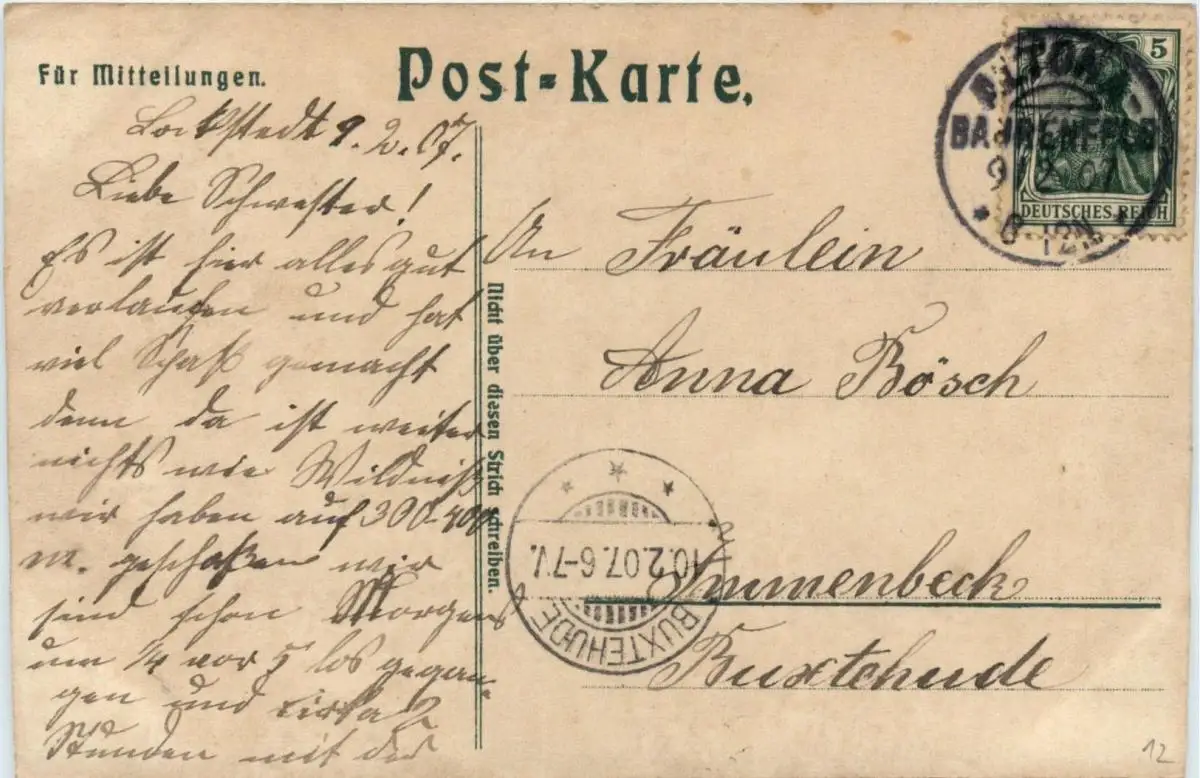 Für Mitteilungen.
Post-Karte.
Lockstedt 9.2.07.
Liebe Schwester!
Es ist hier alles gut
verlaufen und hat
viel Spaß gemacht
denn da ist weiter
nichts wie Wildniß
wir haben auf 300-400
m. geschoßen wir
sind schon Morgens
um 1/4 vor 5 los gegan-
gen und cirka 2
Stunden mit der
Nicht über diesen Strich schreiben.
An Fräulein
Anna Bösch
Immenbeck
Buxtehude
5
DEUTSCHES REICH
ALTONA-
BAHRENFELD
9.2.07
8-12N
BUXTEHUDE
10.2.07.6-7V.
12